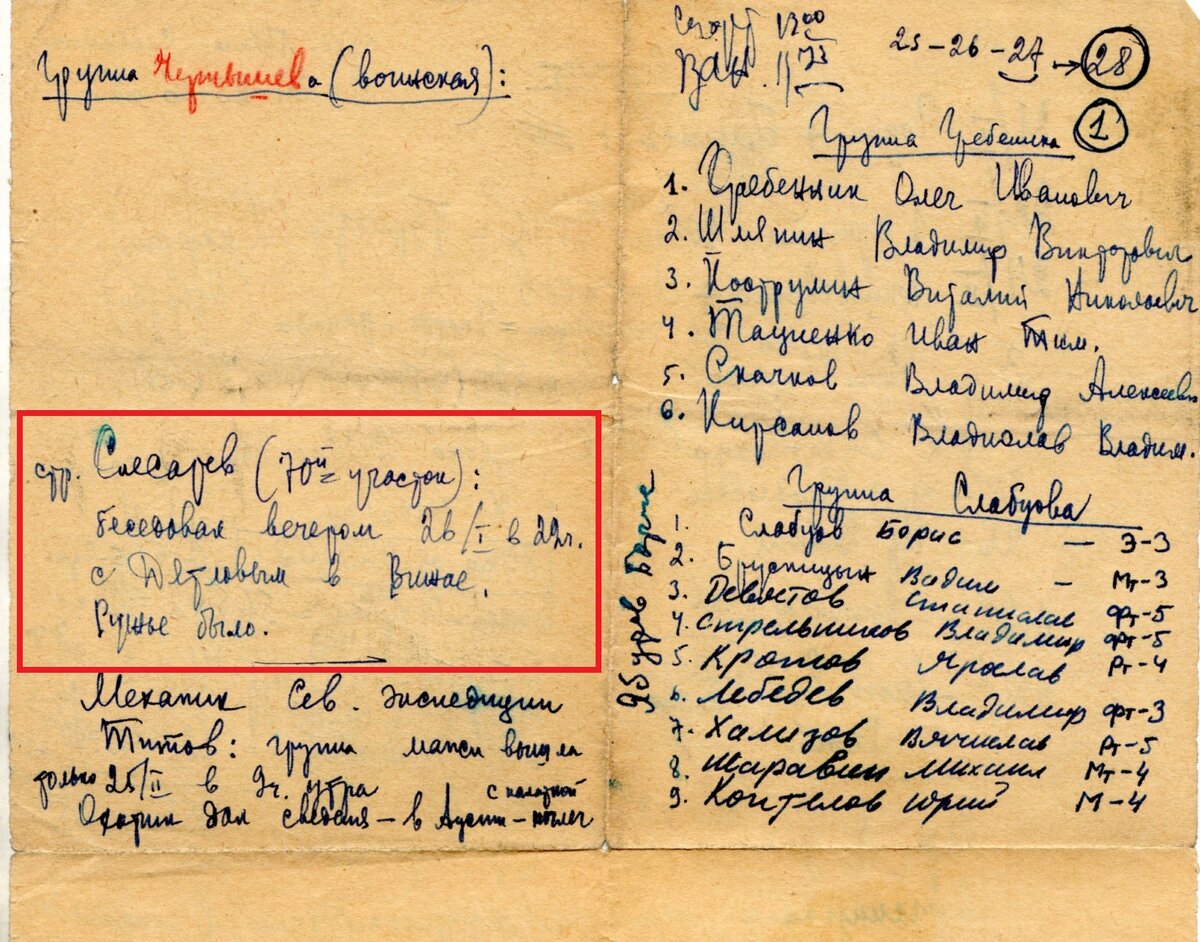 Группа Чернышева (воинская):
стр. Слесарев (70й участок):
беседовал вечером 26/I в 22ч.
с Дятловым в Вижае.
Ружье было.
Механик Сев. экспедиции
Титов: группа манси вышла
только 25/II в 9ч. утра
с палаткой
Охотник дал сведения – в Ауспии –
1300
25-26-27 → 28
Группа Гребенника 1
1. Гребенник Олег Иванович
2. Шляпин Владимир Викторович
3. Пострумин Виталий Николаевич
4. Тациенко Иван Тим.
5. Скачков Владимир Алексеевич
6. Кирсанов Владислав Владим.
Группа Слабцова
1. Слабцов Борис — Э-3
2. Брусницын Вадим – Мт-3
3. Девятов Станислав Фт-5
4. Стрельников Владимир Фт-5
5. Кротов Ярослав Рт-4
6. Лебедев Владимир Фт-3
7. Хализов Вячислав Рт-5
8. Шаравин Михаил Мт-4
9. Коптелов Юрий М-4